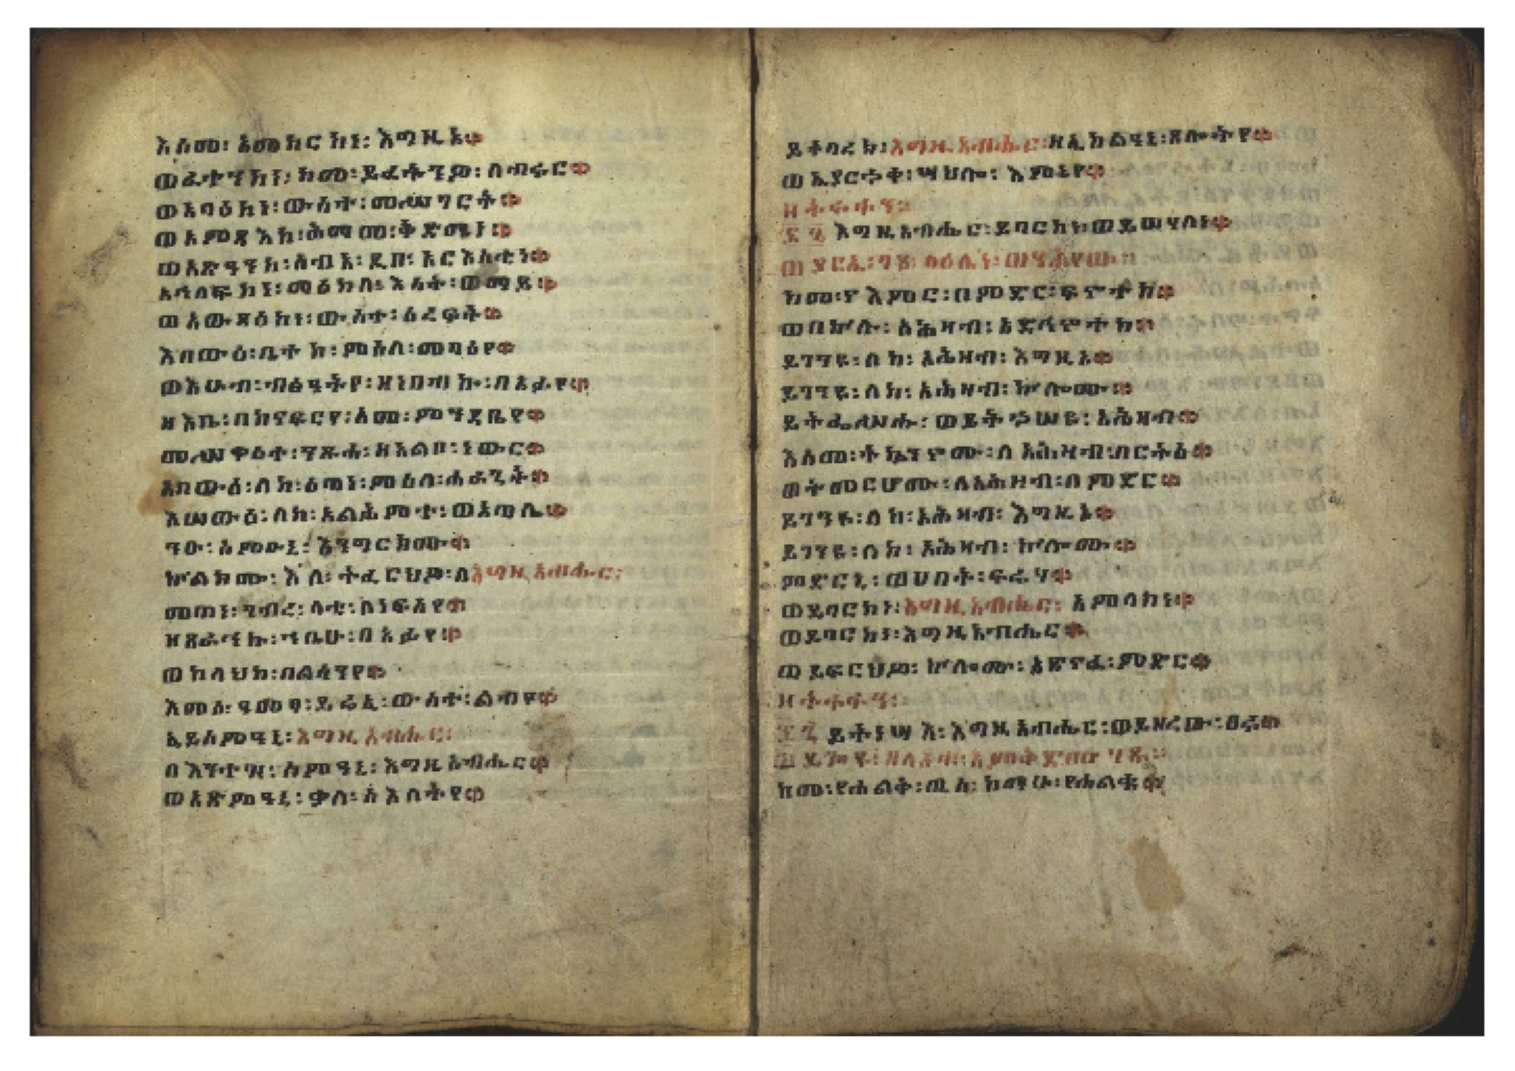 እስመ፡ አመከርከነ፡ እግዚኦ።
ወፈተንከነ፡ ከመ፡ ይፈትንዎ፡ ለብሩር።
ወአባዕከነ፡ ውስተ፡ መሥገርት።
ወአምጻእከ፡ ሕማመ፡ ቅድሜነ።
ወአጽዓንከ፡ ሰብአ፡ ዲበ፡ አርእስቲነ።
አኅለፍከነ፡ ማዕከለ፡ እሳት፡ ወማይ።
ወአውጻዕከነ፡ ውስተ፡ ዕረፍት።
እበውዕ፡ ቤተከ፡ ምስለ፡ መባዕየ።
ወእሁብ፡ ብፅዓትየ፡ ዘነበብኩ፡ በአፉየ።
ዘእቤ፡ በከናፍርየ፡ አመ፡ ምንዳቤየ።
መሥዋዕተ፡ ንጹሐ፡ ዘአልቦ፡ ነውር።
እበውዕ፡ ለከ፡ ዕጣነ፡ ምስለ፡ ሐራጊት።
እሠውዕ፡ ለከ፡ አልሕምተ፡ ወአጣሊ።
ንዑ፡ ስምዑኒ፡ እንግርክሙ።
ኵልክሙ፡ እለ፡ ትፈርህዎ፡ ለእግዚአብሔር፡
መጠነ፡ ገብረ፡ ላቲ፡ ለነፍስየ።
ዘጸራኅኩ፡ ኀቤሁ፡ በአፉየ።
ወከላህኩ፡ በልሳንየ።
እመሰ፡ ዓመፃ፡ ይሬኢ፡ ውስተ፡ ልብየ።
ኢይሰምዓኒ፡ እግዚአብሔር፡
በእንተዝ፡ ሰምዓኒ፡ እግዚአብሔር።
ወአጽምዓኒ፡ ቃለ፡ ስእለትየ።
ይትባረክ፡ እግዚአብሔር፡ ዘኢከልዓኒ፡ ጸሎትየ።
ወኢያርኀቀ፡ ሣህሎ፡ እምኔየ።
ዘተፍጻ፡
፷፮ እግዚአብሔር፡ ይባርከነ፡ ወይሠሃለነ።
ወያርኢ፡ ገጾ፡ ላዕሌነ፡ ወንሕየው።
ከመ፡ ናእምር፡ በምድር፡ ፍኖተከ።
ወበኵሉ፡ አሕዛብ፡ አድኅኖተከ።
ይገንዩ፡ ለከ፡ አሕዛብ፡ እግዚኦ።
ይገንዩ፡ ለከ፡ አሕዛብ፡ ኵሎሙ።
ይትፌሥሑ፡ ወይትኀሠዩ፡ አሕዛብ።
እስመ፡ ትኴንኖሙ፡ ለአሕዛብ፡ በርትዕ።
ወትመርሆሙ፡ ለአሕዛብ፡ በምድር።
ይገንዩ፡ ለከ፡ አሕዛብ፡ እግዚኦ።
ይገንዩ፡ ለከ፡ አሕዛብ፡ ኵሎሙ።
ምድርኒ፡ ወሀበት፡ ፍሬሃ።
ወይባርከነ፡ እግዚአብሔር፡ አምላክነ።
ወይባርከነ፡ እግዚአብሔር።
ወይፍርህዎ፡ ኵሎሙ፡ አጽናፈ፡ ምድር።
፷፯ ይትነሣእ፡ እግዚአብሔር፡ ወይዘረው፡ ፀሩ።
ወይጕየዩ፡ ጸላእቱ፡ እምቅድመ፡ ገጹ።
ከመ፡ የሐልቅ፡ ጢስ፡ ከማሁ፡ የሐልቁ።